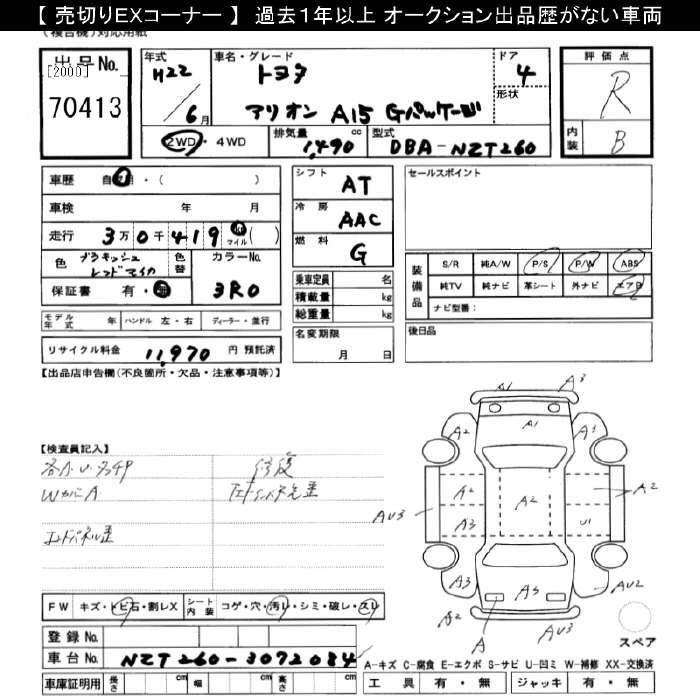 【 売切りEXコーナー 】 過去1年以上 オークション出品歴がない車両
(複合機)対応用紙
出品No.
[2000]
70413
年式 車名・グレード ドア
H22 トヨタ 4
/ 形状
6月 アリオン A15 Gパッケージ
2WD・4WD 排気量 1,490 cc 型式 DBA-NZT260
評価点
R
内装 B
車歴 自家用・( )
車検 年 月
走行 3万0千419 マイル ( )
色 ブラキッシュレッドマイカ 色替 カラーNo. 3R0
保証書 有・無
モデル年式 年 ハンドル 左・右 ディーラー・並行
リサイクル料金 11,970 円 預託済
シフト AT
冷房 AAC
燃料 G
乗車定員 名
積載量 kg
総重量 kg
名変期限
月 日
セールスポイント
装備品 S/R 純A/W P/S P/W ABS
純TV 純ナビ 革シート 外ナビ エアB
ナビ型番:
後日品
【出品店申告欄(不良箇所・欠品・注意事項等)】
【検査員記入】
各A・U・タッチP 修復
WカバーA
エンドパネル歪
A1 A3
A2 A1 A1
A2 A2 A2
AU3 A3 U1
A3 A3 AU2
A2 A AU3
スペア
FW キズ・トビ石・割レX シート内装 コゲ・穴・汚レ・シミ・破レ・スレ
登録No.
車台No. NZT260-3072084
A-キズ C-腐食 E-エクボ S-サビ U-凹ミ W-補修 XX-交換済
車庫証明用 長さ cm 幅 cm 高さ cm 工具 有・無 ジャッキ 有・無